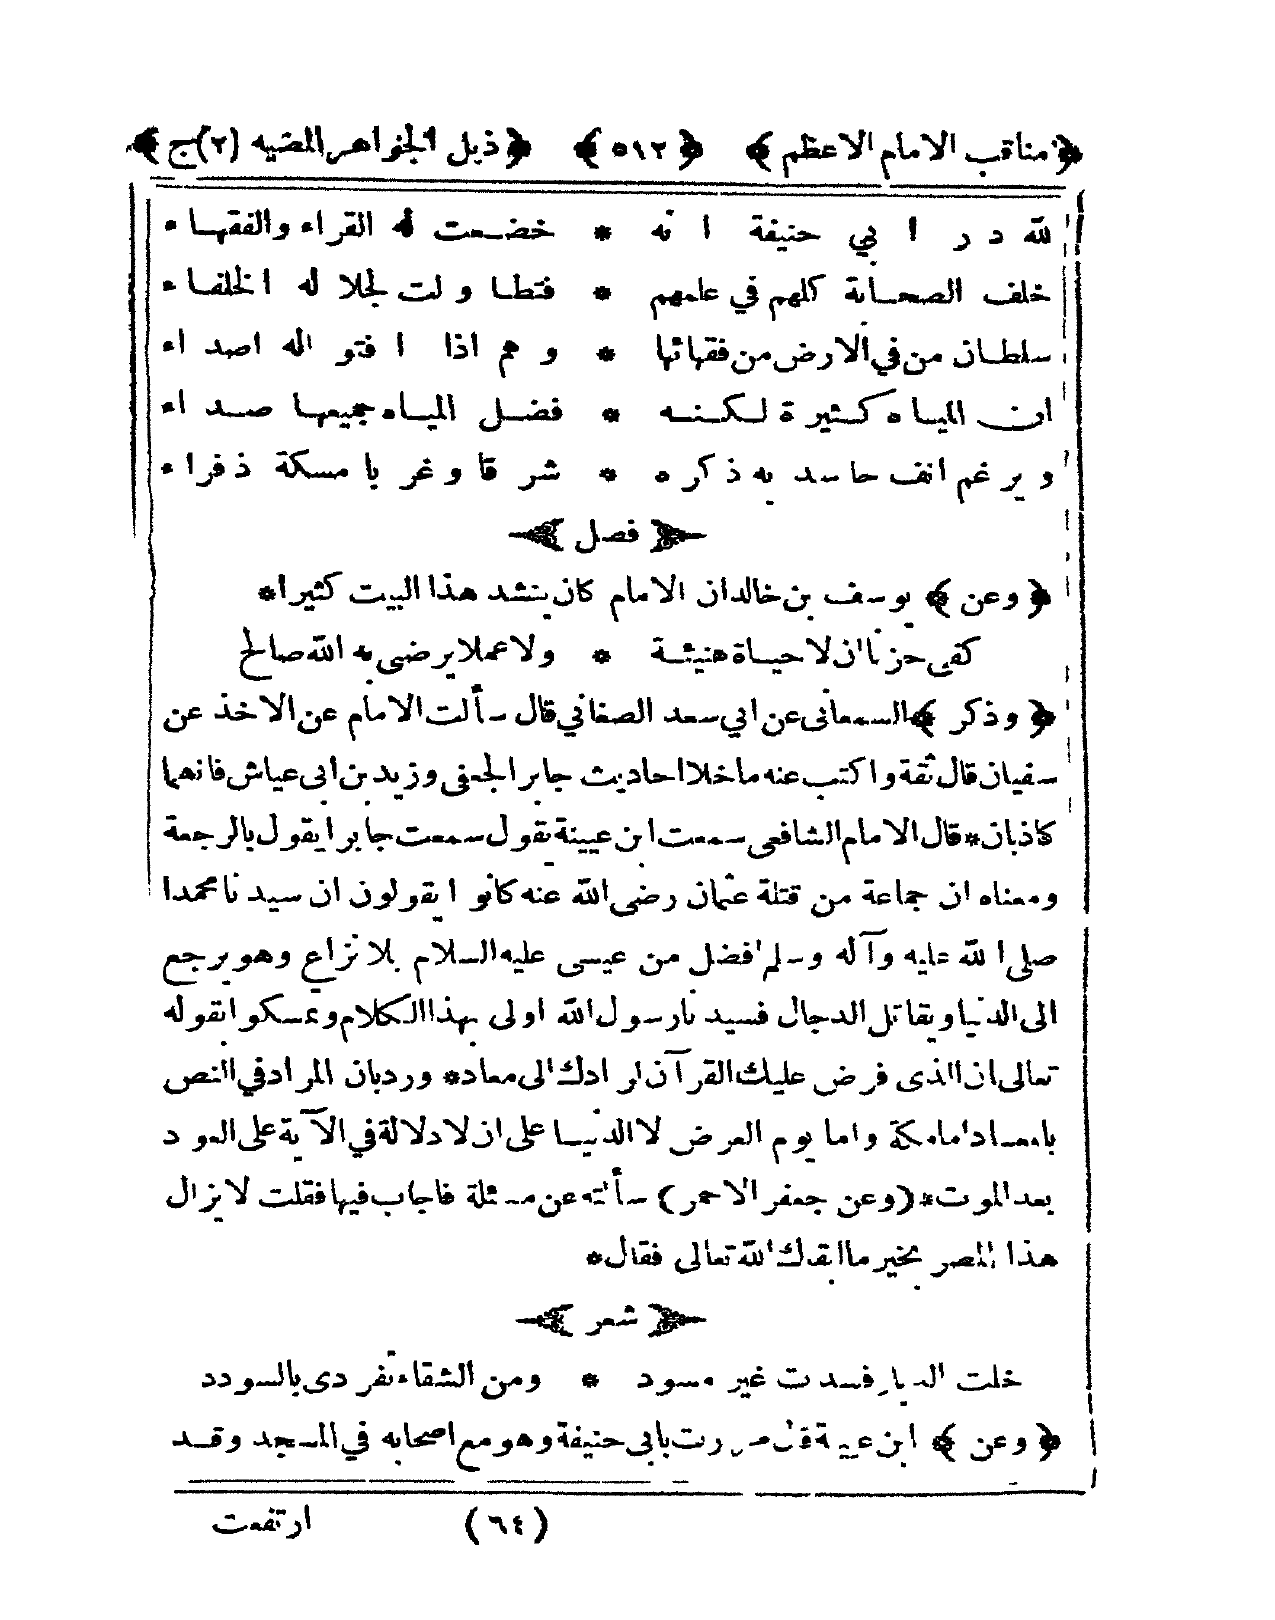 ﴿مناقب الامام الاعظم﴾ ﴿٥١٢﴾ ﴿ذيل الجواهر المضيه (٢)ج﴾
لله در ابي حنيفة انه * خضعت له القراء والفقهاء
خلف الصحابة كلهم في علمهم * فتطاولت لجلاله الخلفاء
سلطان من في الارض من فقهائها * وهم اذا افتوا له اصداء
ان المياه كثيرة لكنه * فضل المياه جميعها صداء
وبرغم انف حاسد به ذكره * شرقا وغربا مسكة ذفراء
فصل
﴿وعن﴾ يوسف بن خالد ان الامام كان ينشد هذا البيت كثيرا*
كفى حزنا ان لا حياة هنيئة * ولا عملا يرضى به الله صالح
﴿وذكر﴾ السمعانى عن ابي سعد الصغاني قال سألت الامام عن الاخذ عن
سفيان قال ثقة واكتب عنه ما خلا احاديث جابر الجعفى وزيد بن ابى عياش فانهما
كاذبان*قال الامام الشافعى سمعت ابن عيينة يقول سمعت جابرا يقول بالرجعة
ومعناه ان جماعة من قتلة عثمان رضى الله عنه كانوا يقولون ان سيدنا محمدا
صلى الله عليه وآله وسلم افضل من عيسى عليه السلام بلا نزاع وهو يرجع
الى الدنيا ويقاتل الدجال فسيدنا رسول الله اولى بهذا الكلام وتمسكوا بقوله
تعالى ان الذى فرض عليك القرآن لرادك الى معاد* وردبان المراد في النص
بالمعاد امامكة واما يوم العرض لا الدنيا على ان لا دلالة في الآية على العود
بعد الموت*(وعن جعفر الاحمر) سألته عن مسئلة فاجاب فيها فقلت لا يزال
هذا المصر بخير ما ابقدك الله تعالى فقال*
شعر
خلت الديار فسدت غير مسود * ومن الشقاء تفردى بالسودد
﴿وعن﴾ ابن عيينة قال مررت بابى حنيفة وهو مع اصحابه في المسجد وقد
(٦٤) ارتفعت